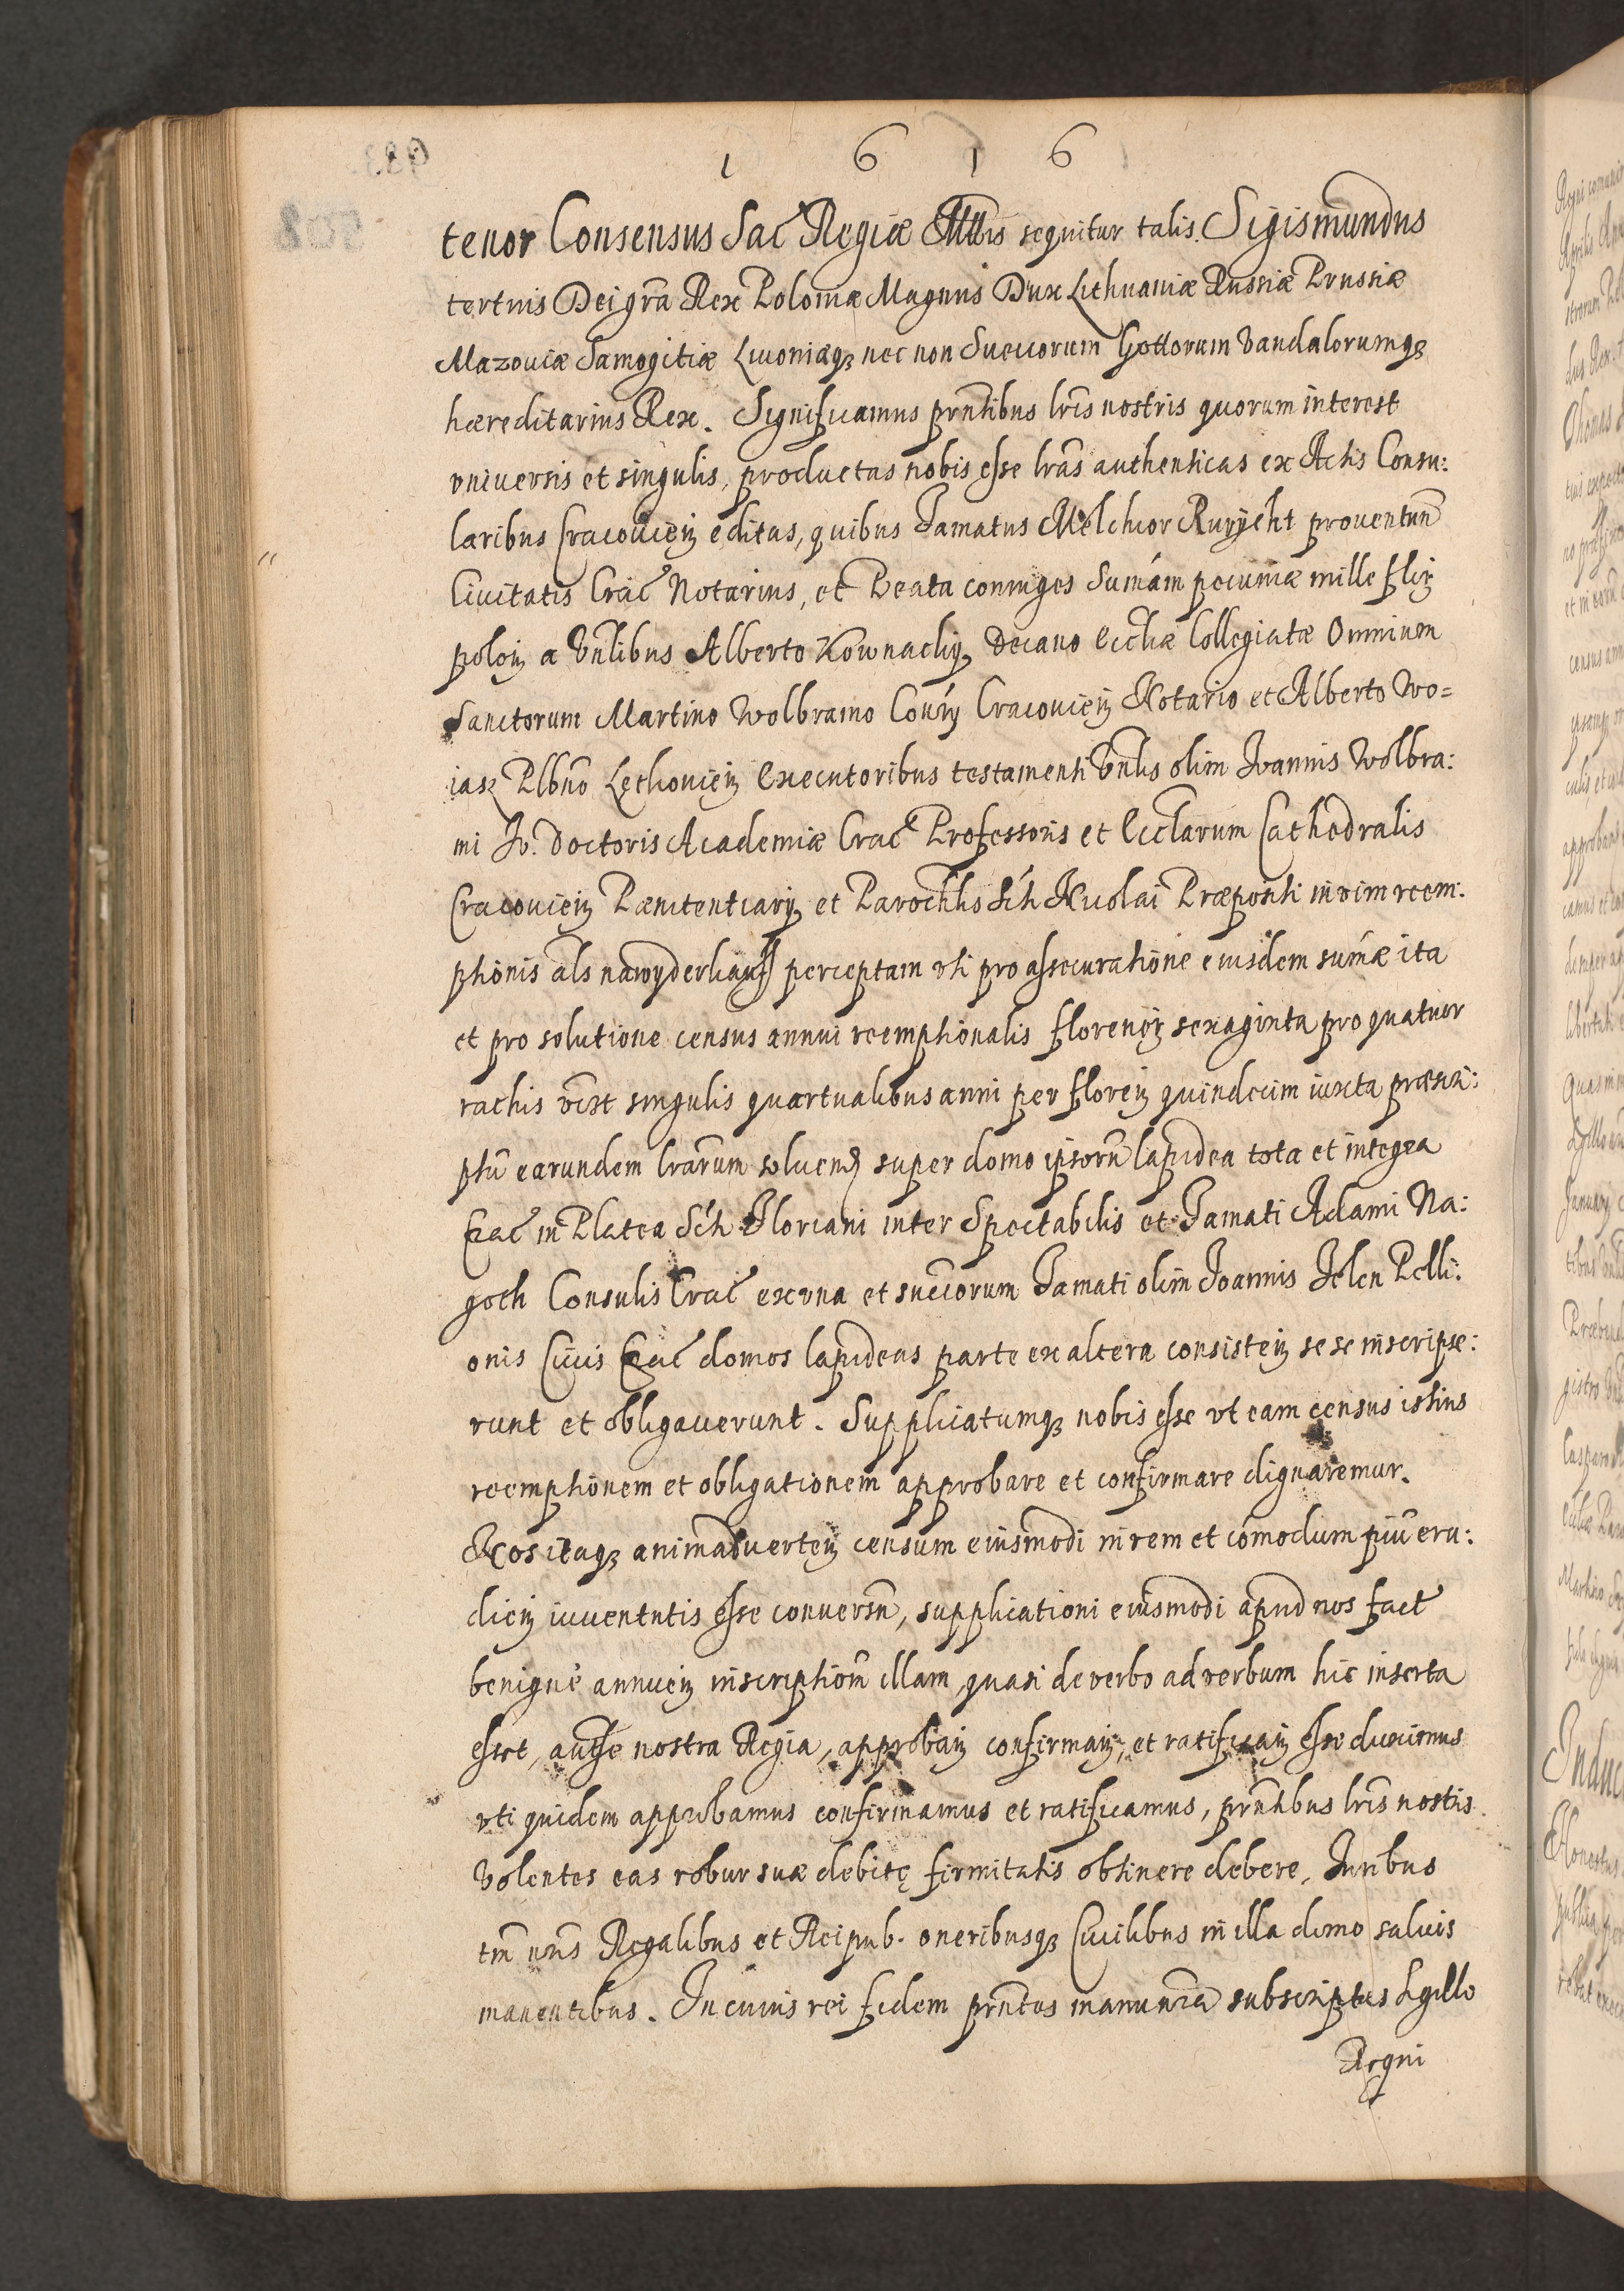 1 6 1 6
tenor Consensus Sac Regiæ Mttis sequitur talis. Sigismundus
tertius Dei gra Rex Poloniæ Magnus Dux Lithuaniæ Russiæ Prussiæ
Mazoviæ Samogitiæ Livoniæq, nec non Suecorum Gottorum Vandalorumq,
hæreditarius Rex. Significamus prntibus lris nostris quorum interest
vniversis et singulis, productas nobis esse lras authenticas ex Actis Consu:
laribus Cracovien editas, quibus Famatus Melchior Rurycht proventun
Civitatis Crac Notarius, et Beata coniuges Sumam pecuniæ mille flen
polon a Vnlibus Alberto Kownacky Decano Eccliæ Collegiatæ Omnium
Sanctorum Martino Wolbramo Coury Cracovien Notario et Alberto Wo=
iasz Plbno Lethovien Executoribus testamenti Vnlis olim Ioannis Wolbra:
mi Iv. Doctoris Academiæ Crac Professoris et Ecclarum Cathedralis
Cracovien Pænitentiary et Parochlis Scti Nicolai Præpositi in vim reem:
ptionis als perceptam vti pro assecuratione eiusdem sumæ ita
et pro solutione census annui reemptionalis florenon sexaginta pro quatuor
rachis vczt singulis quartualibus anni per floren quindecim iuxta præscri:
ptu earundem lrarum soluend super domo ipsoru lapidea tota et integra
Crac in Platea Scti Floriani inter Spectabilis et Famati Adami Na:
goth Consulis Crac ex una et succorum Famati olim Ioannis Jelen Pelli:
onis Civis Crac domos lapideas parte ex altera consisten sese inscripse:
runt et obligaverunt. Supplicatumq, nobis esse vt eam census istius
reemptionem et obligationem approbare et confirmare dignaremur.
Nos itaq, animadverten censum eiusmodi in rem et comodum piu eru:
dien iuventutis esse conversu, supplicationi eiusmodi apud nos fact
benigne annuen inscription illam, quasi de verbo ad verbum hic inserta
esset, autte nostra Regia, approban confirman, et ratifican esse duximus
vti quidem approbamus confirmamus et ratificamus, prntibus lris nostis.
Volentes eas robur suæ debitę firmitatis obtinere debere, Iuribus
tm nris Regalibus et Reipub. oneribusq, Civilibus in illa domo salvis
manentibus. In cuius rei fidem prntes manu nra subscriptas Sigillo
Regni